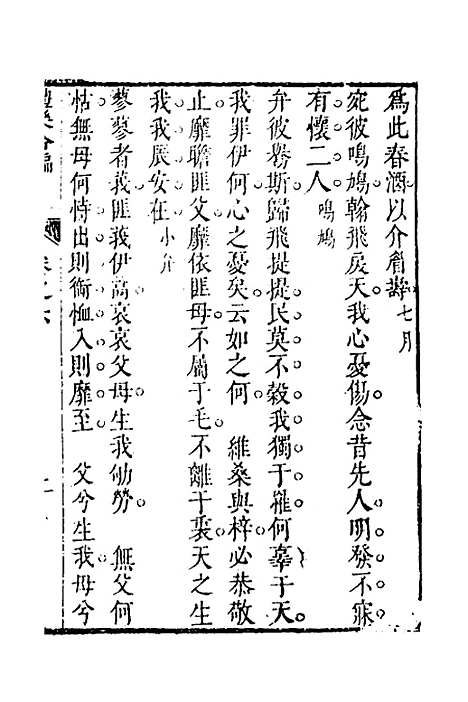 為此春酒以介眉壽七月
宛彼鳴鳩翰飛戾天我心憂傷念昔先人明發不寐
有懷二人鳴鳩
弁彼鸒斯歸飛提提民莫不穀我獨于罹何辜于天
我罪伊何心之憂矣云如之何 維桑與梓必恭敬
止靡瞻匪父靡依匪母不屬于毛不離于裏天之生
我我辰安在小弁
蓼蓼者莪匪莪伊蒿哀哀父母生我劬勞 無父何
怙無母何恃出則銜恤入則靡至 父兮生我母兮
卷之六